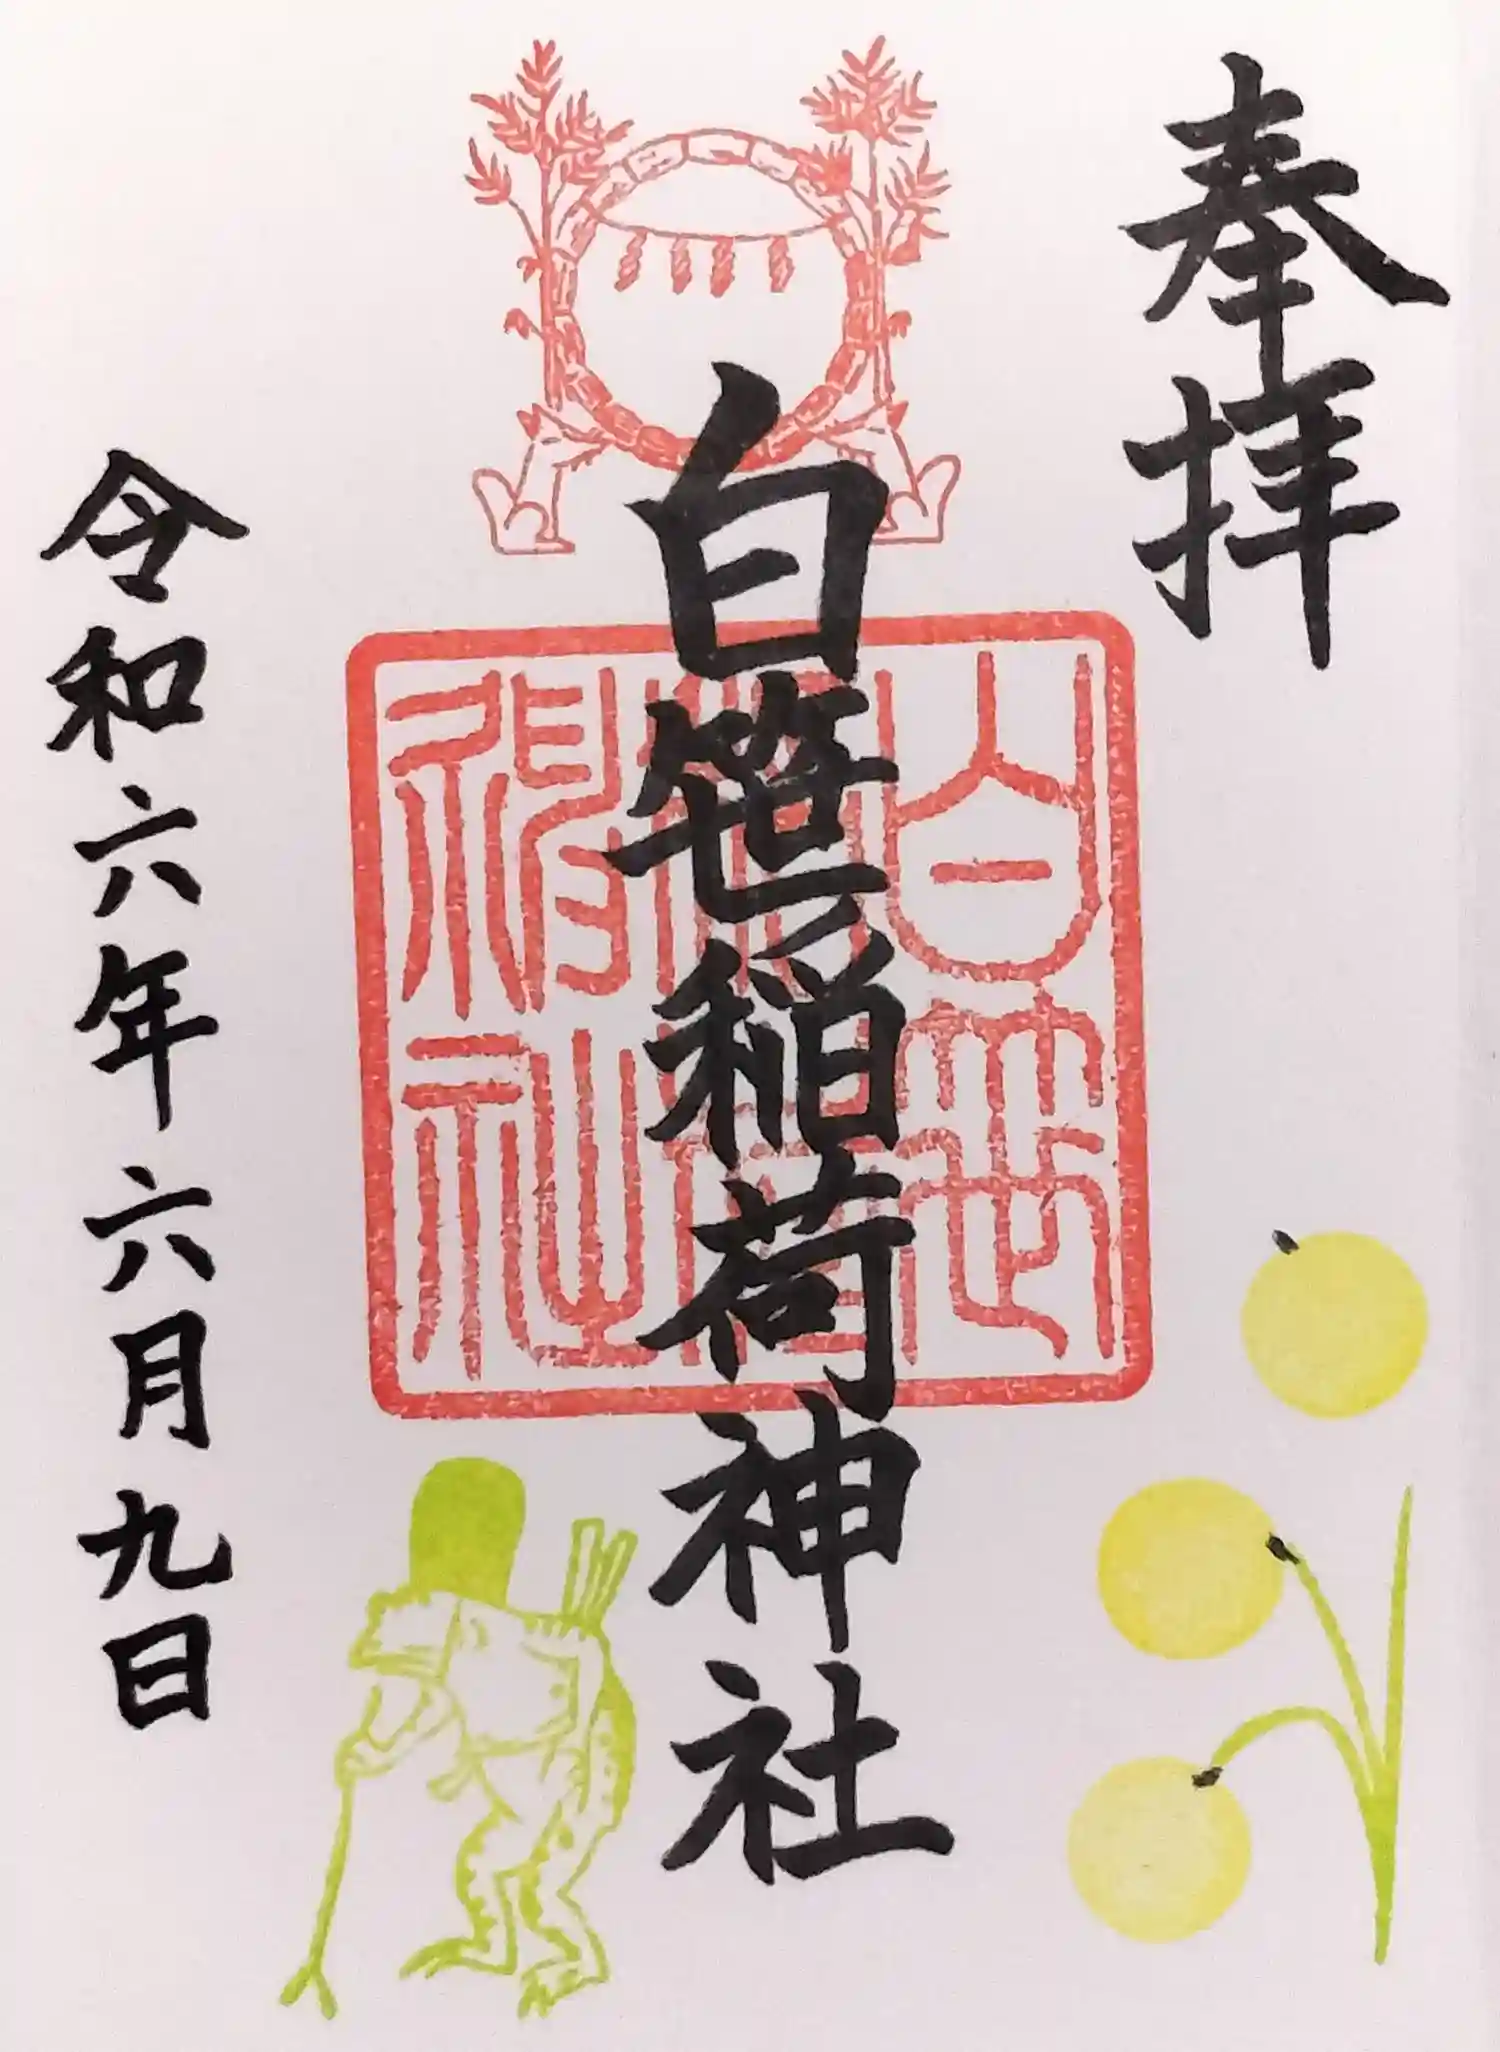 奉拝
白笹稲荷神社
白笹
稲荷
神社
令和六年六月九日